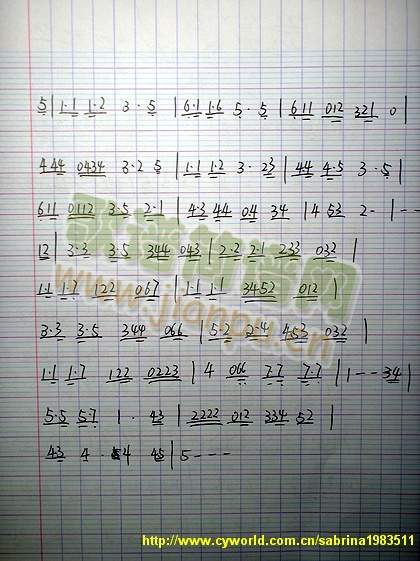 5 | 1·1 1·2 3· 5 | 6·1 1·6 5· 5 | 6 11 012 321 0 |
444 0434 3·2 5 | 1·1 1·2 3· 23 | 44 4·5 3· 5 |
611 0112 3·5 2·1 | 4·3 44 04 34 | 4 53 2- | --
12 | 3·3 3·5 344 043 | 2·2 2·1 233 032 |
1·1 1·7 122 067 | 1·1 1·1 3452 012 |
3·3 3·5 344 066 | 5·2 2·4 453 032 |
1·1 1·7 122 0223 | 4 066 7·7 7·7 | 1 - - 34 |
5·5 57 1 · 43 | 2222 012 334 52 |
43 4 · 4 45 | 5 - - -
www.jianpu.cn
http://www.cyworld.com.cn/sabrina1983511